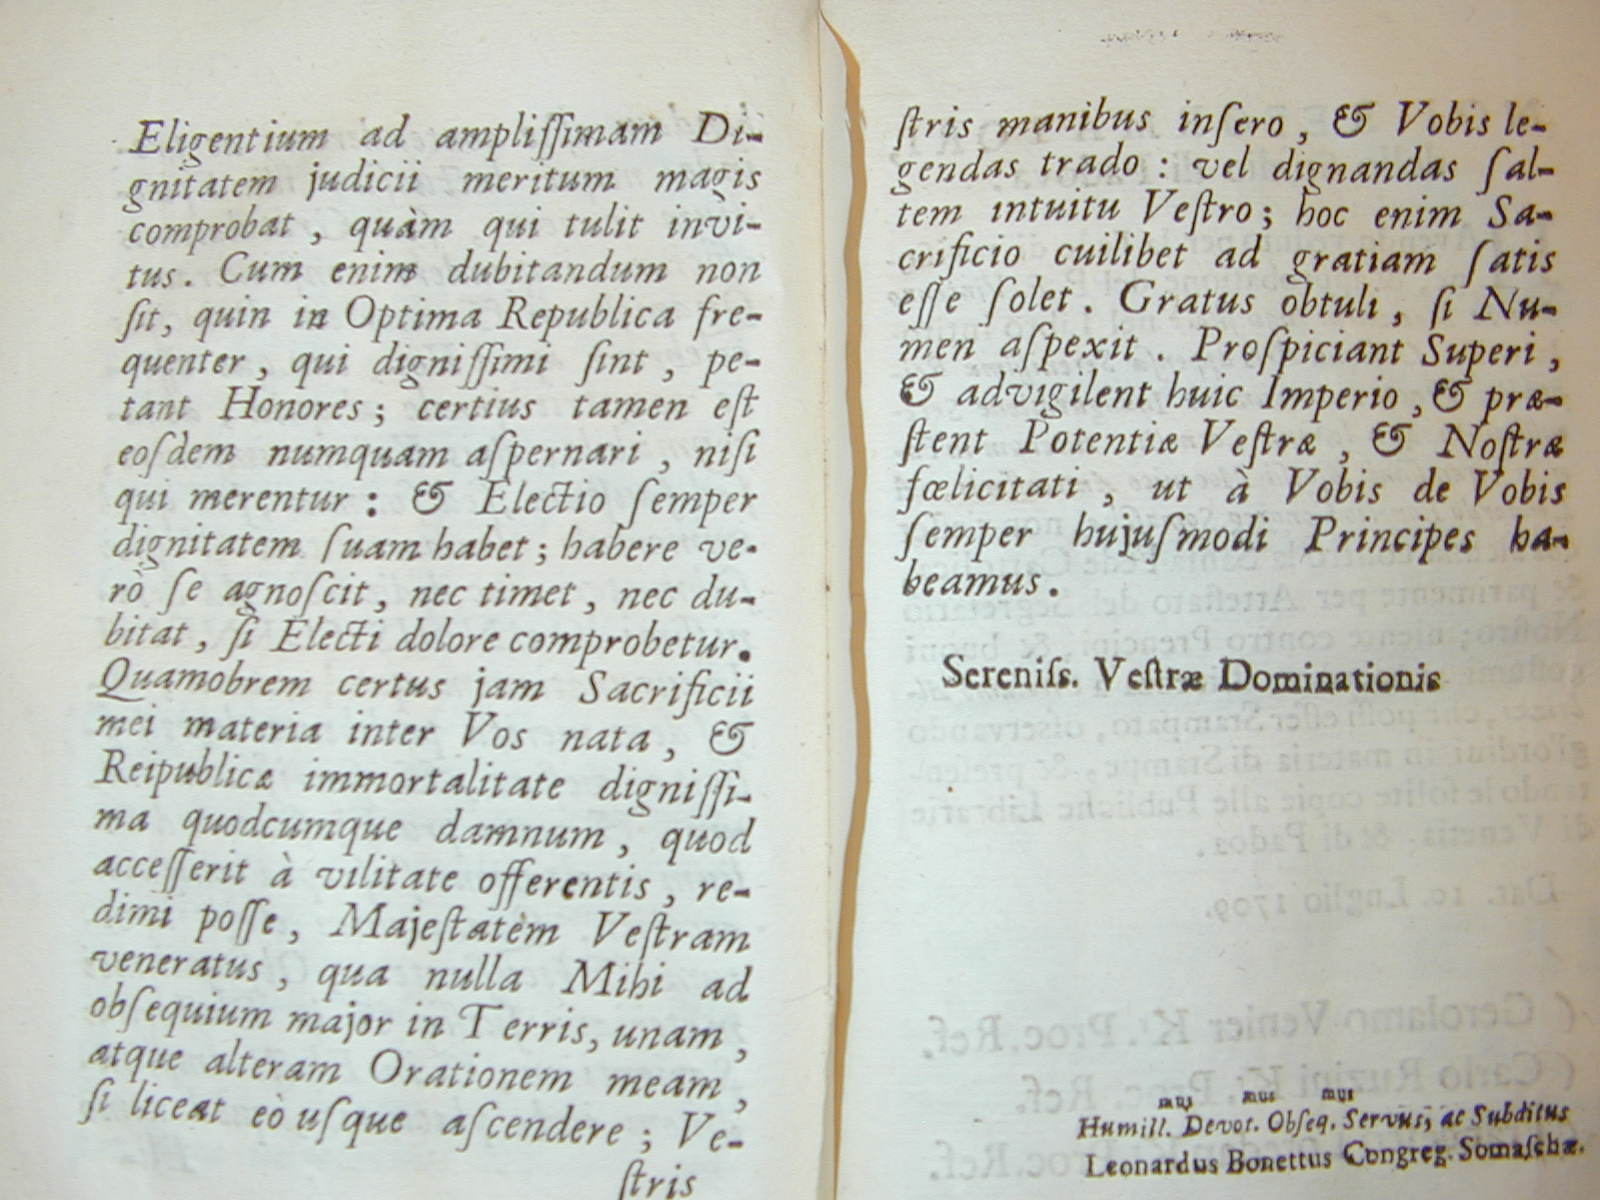 Eligentium ad ampliſſimam Di-
gnitatem judicii meritum magis
comprobat, quàm qui tulit invi-
tus. Cum enim dubitandum non
ſit, quin in Optima Republica fre-
quenter, qui digniſſimi ſint, pe-
tant Honores; certius tamen eſt
eoſdem numquam aſpernari, niſi
qui merentur: & Electio ſemper
dignitatem ſuam habet; habere ve-
rò ſe agnoſcit, nec timet, nec du-
bitat, ſi Electi dolore comprobetur.
Quamobrem certus jam Sacrificii
mei materia inter Vos nata, &
Reipublicæ immortalitate digniſſi-
ma quodcumque damnum, quod
acceſſerit à vilitate offerentis, re-
dimi poſſe, Majeſtatèm Veſtram
veneratus, qua nulla Mihi ad
obſequium major in Terris, unam,
atque alteram Orationem meam,
ſi liceat eò uſque aſcendere; Ve-
ſtris
ſtris manibus inſero, & Vobis le-
gendas trado: vel dignandas ſal-
tem intuitu Veſtro; hoc enim Sa-
crificio cuilibet ad gratiam ſatis
eſſe ſolet. Gratus obtuli, ſi Nu-
men aſpexit. Proſpiciant Superi,
& advigilent huic Imperio, & præ-
ſtent Potentiæ Veſtræ, & Noſtræ
fœlicitati, ut à Vobis de Vobis
ſemper hujuſmodi Principes ha-
beamus.
Sereniſs. Veſtræ Dominationis
mus mus mus
Humill. Devot. Obſeq. Servus, ac Subditus
Leonardus Bonettus Congreg. Somaſchæ.